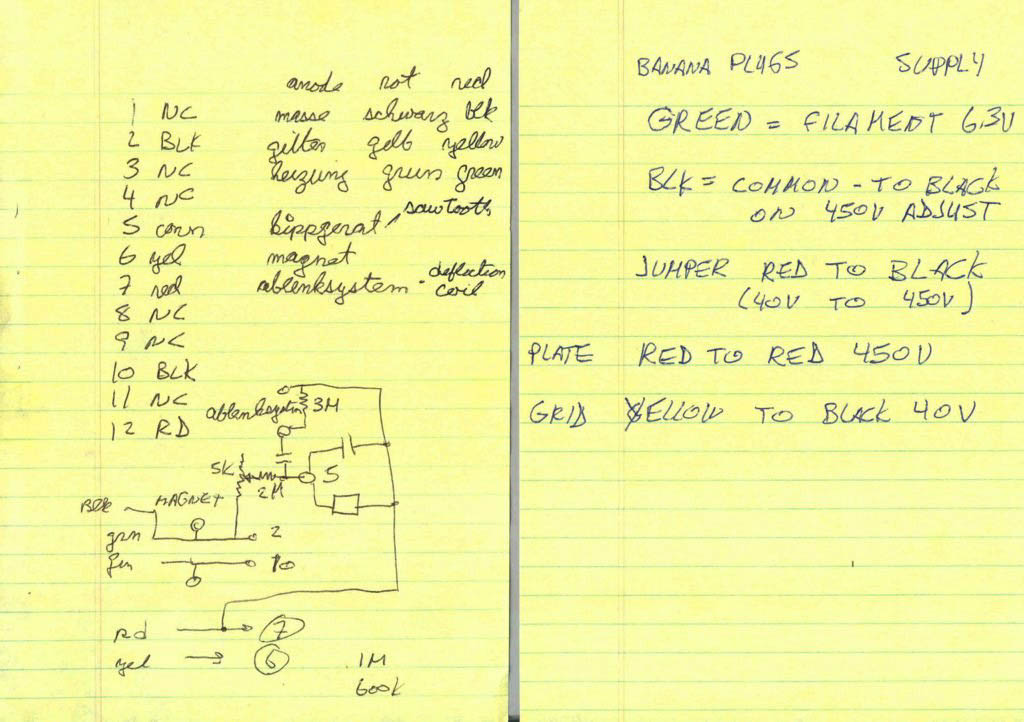 anode rot red
1 NC masse schwarz blk
2 BLK gitter gelb yellow
3 NC heizung grun green
4 NC
sawtooth
5 corn kippgerat
6 yel magnet
7 red ablenksystem - deflection coil
8 NC
9 NC
10 BLK
11 NC
12 RD
ablenksystem 3M
5K 2M 5
Blk MAGNET
grn 2
10
rd 7
yel 6
1M
600K
BANANA PLUGS SUPPLY
GREEN = FILAMENT 6.3V
BLK = COMMON - TO BLACK
ON 450V ADJUST
JUMPER RED TO BLACK
(40V TO 450V)
PLATE RED TO RED 450V
GRID YELLOW TO BLACK 40V